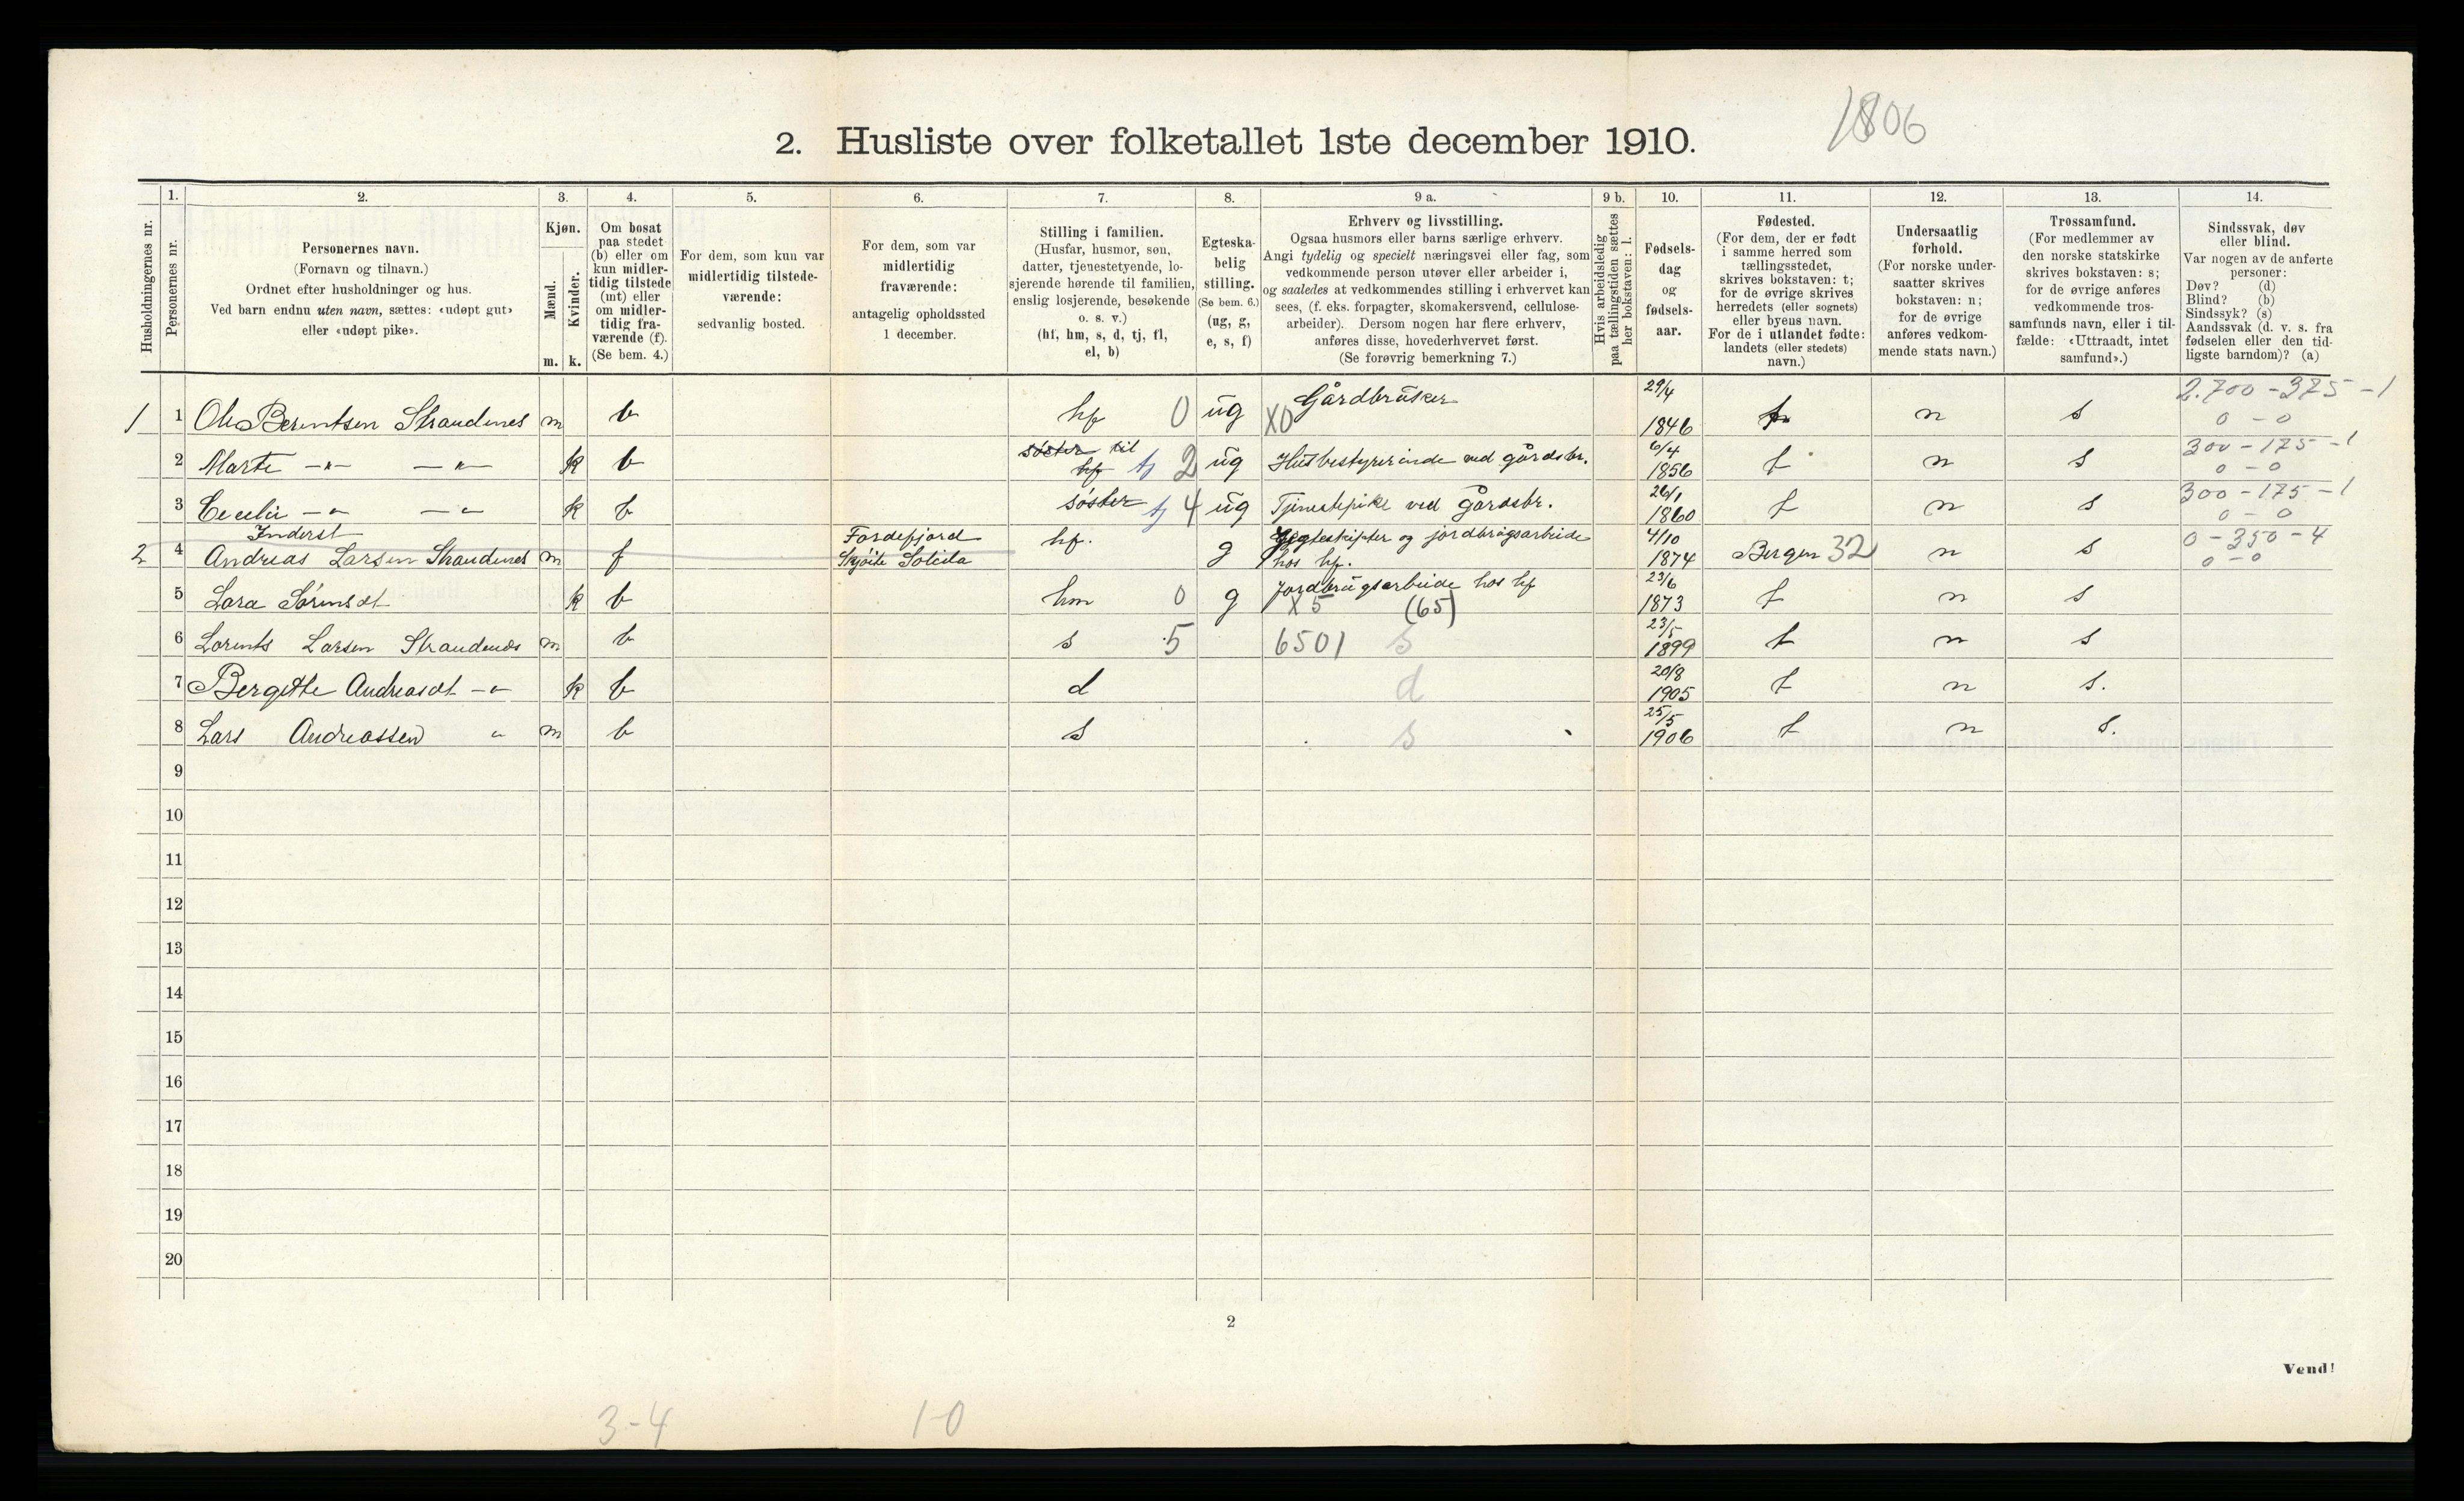 1806
2. Husliste over folketallet 1ste december 1910.
Husholdningernes nr.
1.
Personernes nr.
2.
Personernes navn.
(Fornavn og tilnavn.)
Ordnet efter husholdninger og hus.
Ved barn endnu uten navn, sættes: «udøpt gut»
eller «udøpt pike».
3.
Kjøn.
Mænd.
Kvinder.
m. k.
4.
Om bosat
paa stedet
(b) eller om
kun midler-
tidig tilstede
(mt) eller
om midler-
tidig fra-
værende (f).
(Se bem. 4.)
5.
For dem, som kun var
midlertidig tilstede-
værende:
sedvanlig bosted.
6.
For dem, som var
midlertidig
fraværende:
antagelig opholdssted
1 december.
7.
Stilling i familien.
(Husfar, husmor, søn,
datter, tjenestetyende, lo-
sjerende hørende til familien,
enslig losjerende, besøkende
o. s. v.)
(hf, hm, s, d, tj, fl,
el, b)
8.
Egteska-
belig
stilling.
(Se bem. 6.)
(ug, g,
e, s, f)
9 a.
Erhverv og livsstilling.
Ogsaa husmors eller barns særlige erhverv.
Angi tydelig og specielt næringsvei eller fag, som
vedkommende person utøver eller arbeider i,
og saaledes at vedkommendes stilling i erhvervet kan
sees, (f. eks. forpagter, skomakersvend, cellulose-
arbeider). Dersom nogen har flere erhverv,
anføres disse, hovederhvervet først.
(Se forøvrig bemerkning 7.)
9 b.
Hvis arbeidsledig
paa tællingstiden sættes
her bokstaven: l.
10.
Fødsels-
dag
og
fødsels-
aar.
11.
Fødested.
(For dem, der er født
i samme herred som
tællingsstedet,
skrives bokstaven: t;
for de øvrige skrives
herredets (eller sognets)
eller byens navn.
For de i utlandet fødte:
landets (eller stedets)
navn.)
12.
Undersaatlig
forhold.
(For norske under-
saatter skrives
bokstaven: n;
for de øvrige
anføres vedkom-
mende stats navn.)
13.
Trossamfund.
(For medlemmer av
den norske statskirke
skrives bokstaven: s;
for de øvrige anføres
vedkommende tros-
samfunds navn, eller i til-
fælde: «Uttraadt, intet
samfund».)
14.
Sindssvak, døv
eller blind.
Var nogen av de anførte
personer:
Døv? (d)
Blind? (b)
Sindssyk? (s)
Aandssvak (d. v. s. fra
fødselen eller den tid-
ligste barndom)? (a)
1 1 Ole Berentsen Strandenes m b hf 0 ug X0 Gårdbruker 29/4 1846 t n s 2.700 - 375 - 1
0 - 0
2 Marte -"- -"- k b søster til hf tj 2 ug Husbestyrerinde ved gårdsbr. 6/4 1856 t n s 300 - 175 - 1
0 - 0
3 Cecelie -"- -"- k b søster tj 4 ug Tjenestepike ved gårdsbr. 26/1 1860 t n s 300 - 175 - 1
0 - 0
Inderst
2 4 Andreas Larsen Strandenes m f Førdefjord Skjöite Solida hf. g og jordbrugsarbeide hos hf. 4/10 1874 Bergen 32 n s 0 - 350 - 4
0 - 0
5 Lara Sørensdt k b hm 0 g Jordbrugsarbeide hos hf X 5 (65) 23/6 1873 t n s
6 Lorents Larsen Strandenes m b s 5 6501 s 23/5 1899 t n s
7 Bergitte Andreasdt -"- k b d d 20/8 1905 t n s.
8 Lars Andreassen " m b s s 25/5 1906 t n s.
9
10
11
12
13
14
15
16
17
18
19
20
2
Vend!
3-4 1-0